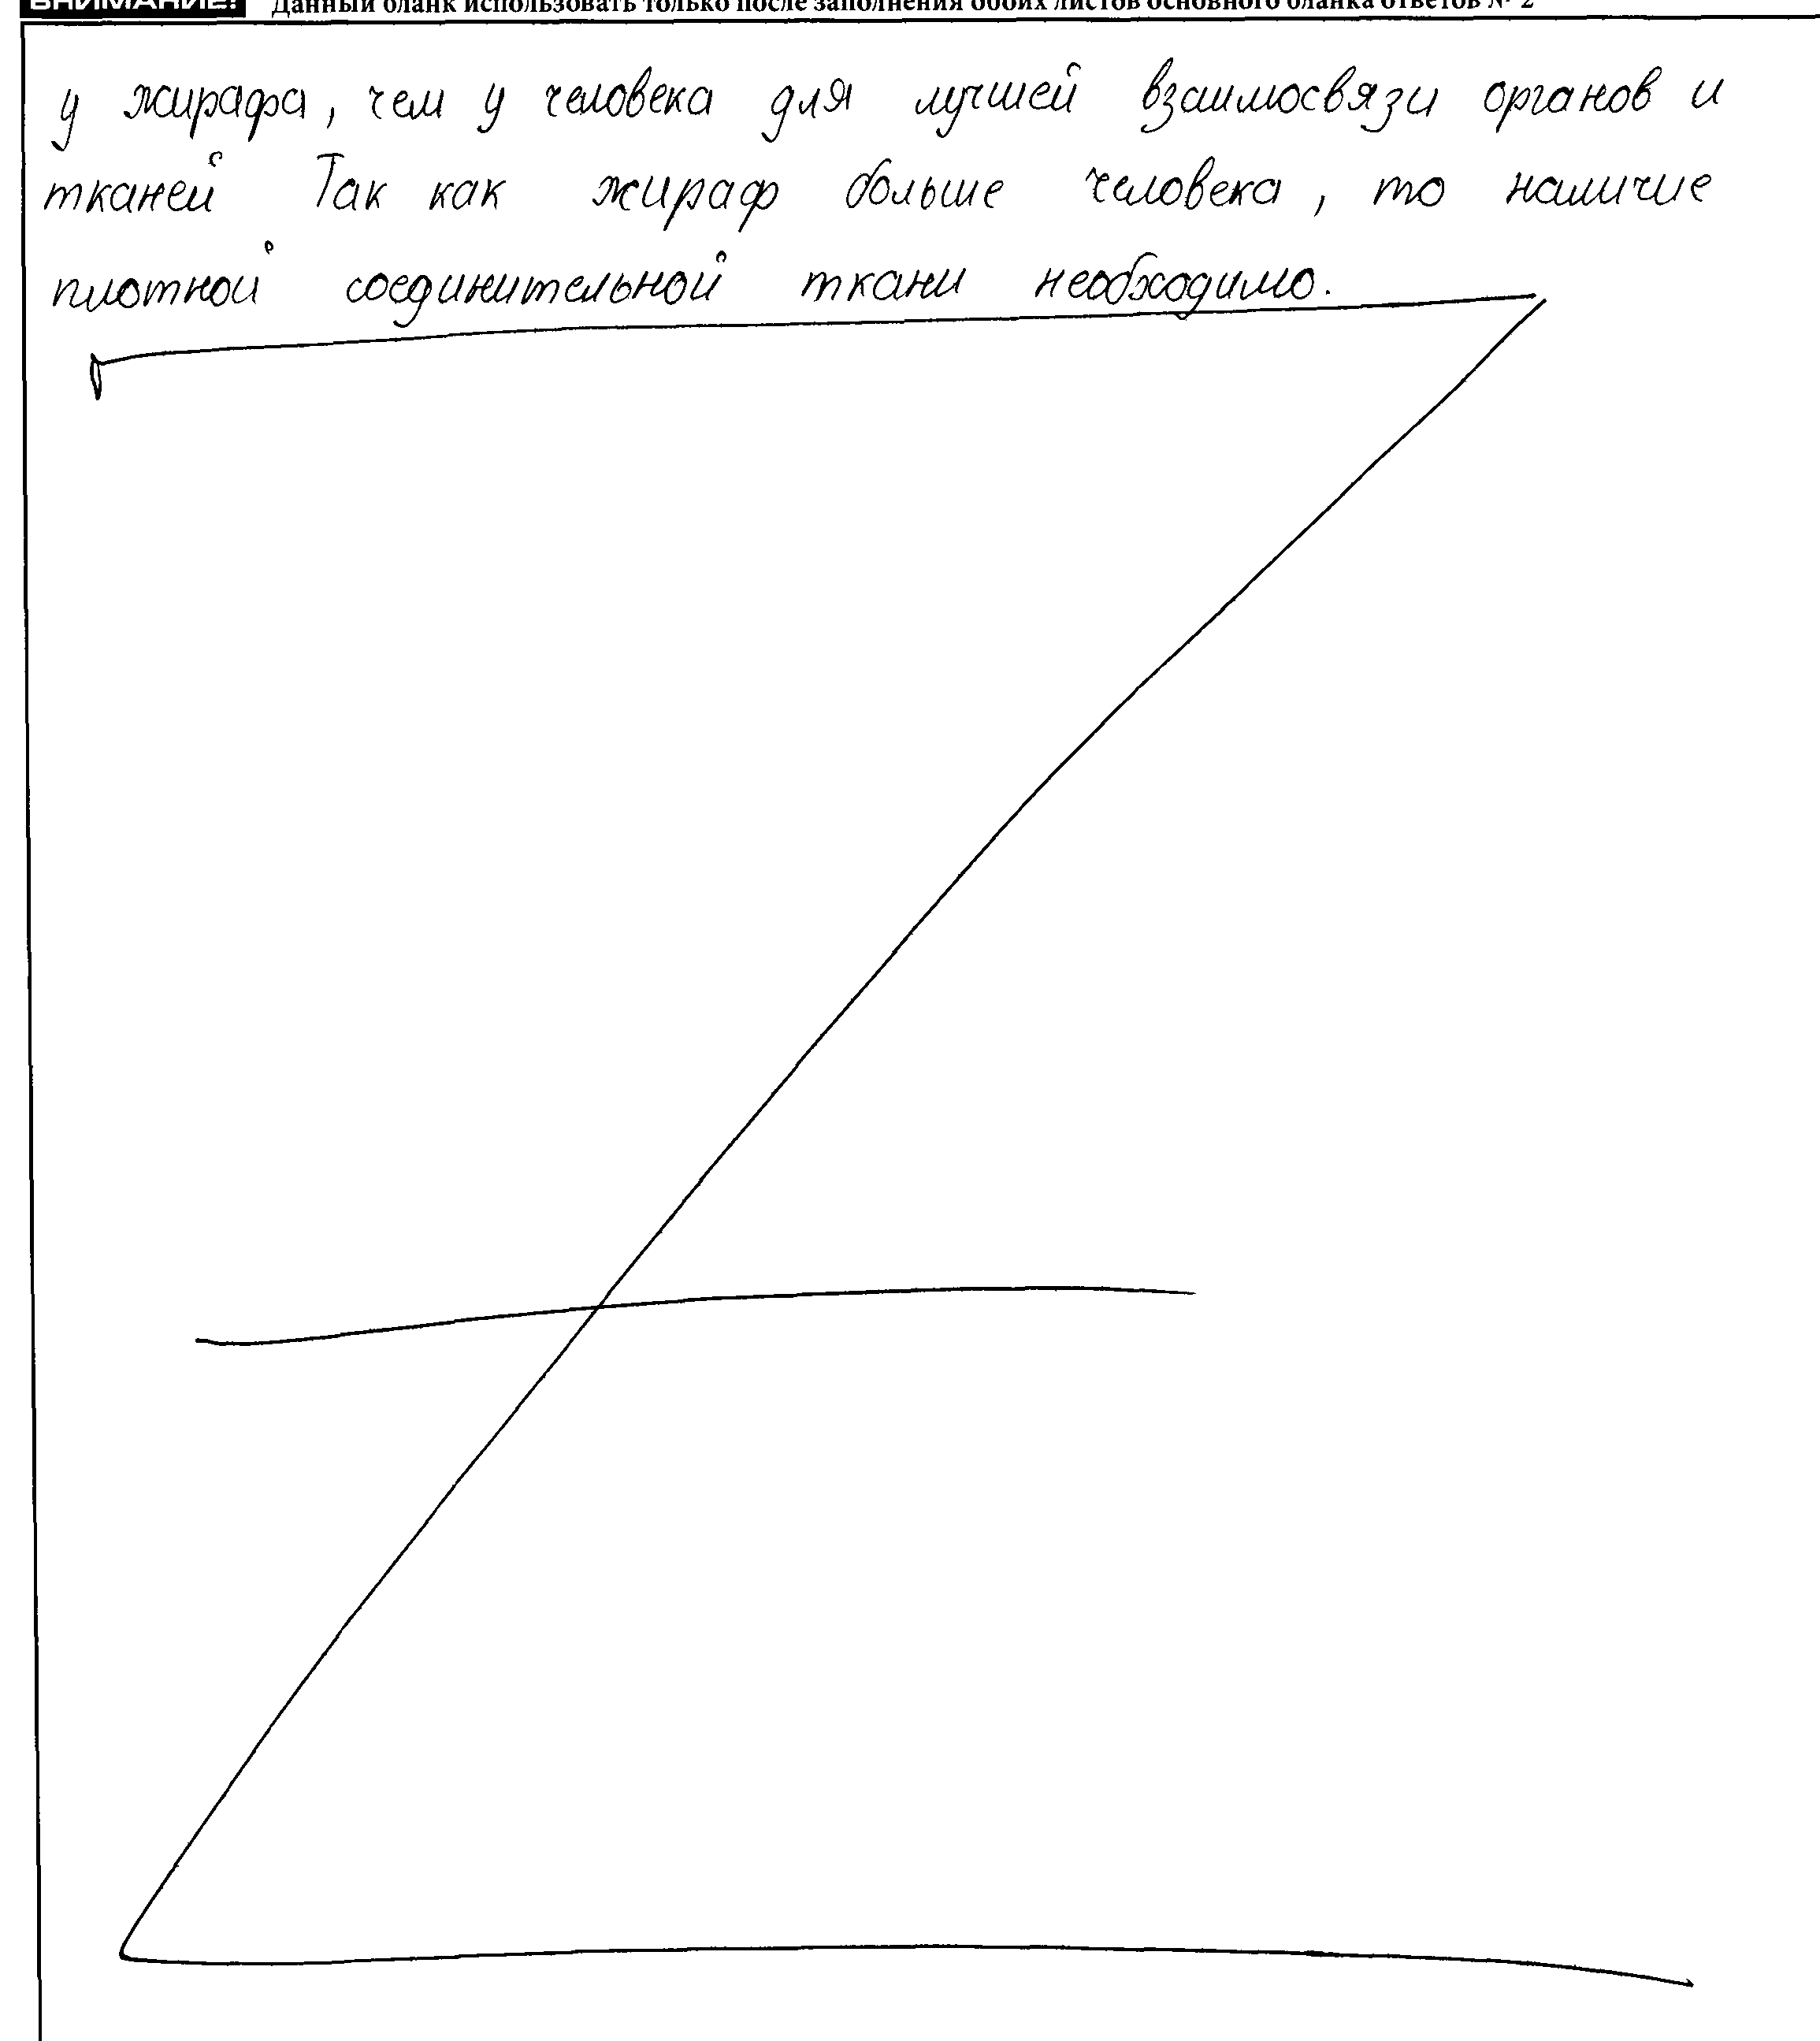 ВНИМАНИЕ! Данный бланк использовать только после заполнения обоих листов основного бланка ответов № 2
у жирафа, чем у человека для лучшей взаимосвязи органов и
тканей Так как жираф больше человека, то наличие
плотной соединительной ткани необходимо.